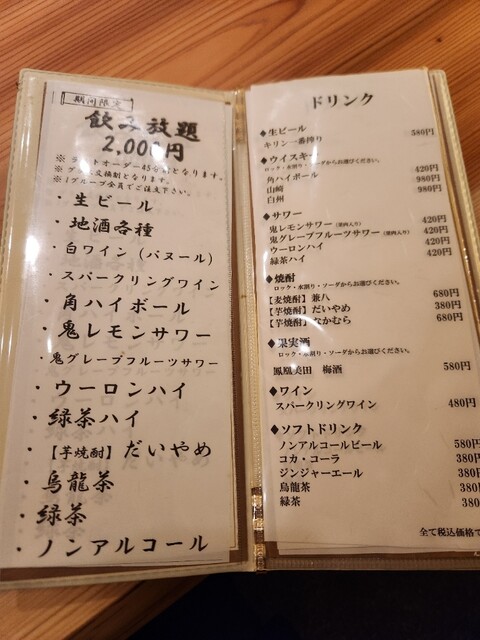 期間限定
飲み放題
2,000円
※ ラストオーダー45分前となります。
※ グラス交換制となります。
※ 1グループ全員でご注文下さい。
・生ビール
・地酒各種
・白ワイン（バヌール）
・スパークリングワイン
・角ハイボール
・鬼レモンサワー
・鬼グレープフルーツサワー
・ウーロンハイ
・緑茶ハイ
・【芋焼酎】だいやめ
・烏龍茶
・緑茶
・ノンアルコール
ドリンク
◆生ビール
キリン一番搾り 580円
◆ウイスキー
ロック・水割り・ソーダからお選びください。
角ハイボール 420円
山崎 980円
白州 980円
◆サワー
鬼レモンサワー（果肉入り） 420円
鬼グレープフルーツサワー（果肉入り） 420円
ウーロンハイ 420円
緑茶ハイ 420円
◆焼酎
ロック・水割り・ソーダからお選びください。
【麦焼酎】兼八 680円
【芋焼酎】だいやめ 380円
【芋焼酎】なかむら 680円
◆果実酒
ロック・水割り・ソーダからお選びください。
鳳凰美田 梅酒 580円
◆ワイン
スパークリングワイン 480円
◆ソフトドリンク
ノンアルコールビール 580円
コカ・コーラ 380円
ジンジャーエール 380円
烏龍茶 380円
緑茶 380円
全て税込価格で